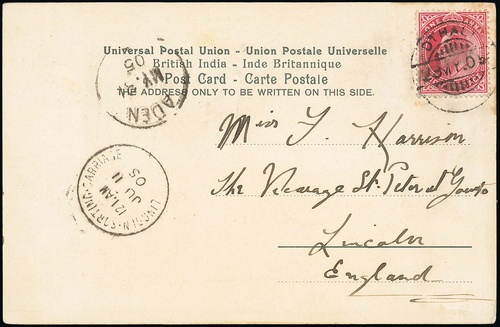 Universal Postal Union - Union Postale Universelle
British India - Inde Britannique
Post Card - Carte Postale
THE ADDRESS ONLY TO BE WRITTEN ON THIS SIDE.
ADEN
MY
05
LINCOLN·SORTING·CARRIAGE
12 AM
JU 11
05
Miss F. Harrison
The Vicarage St. Peter at Gowts
Lincoln
England